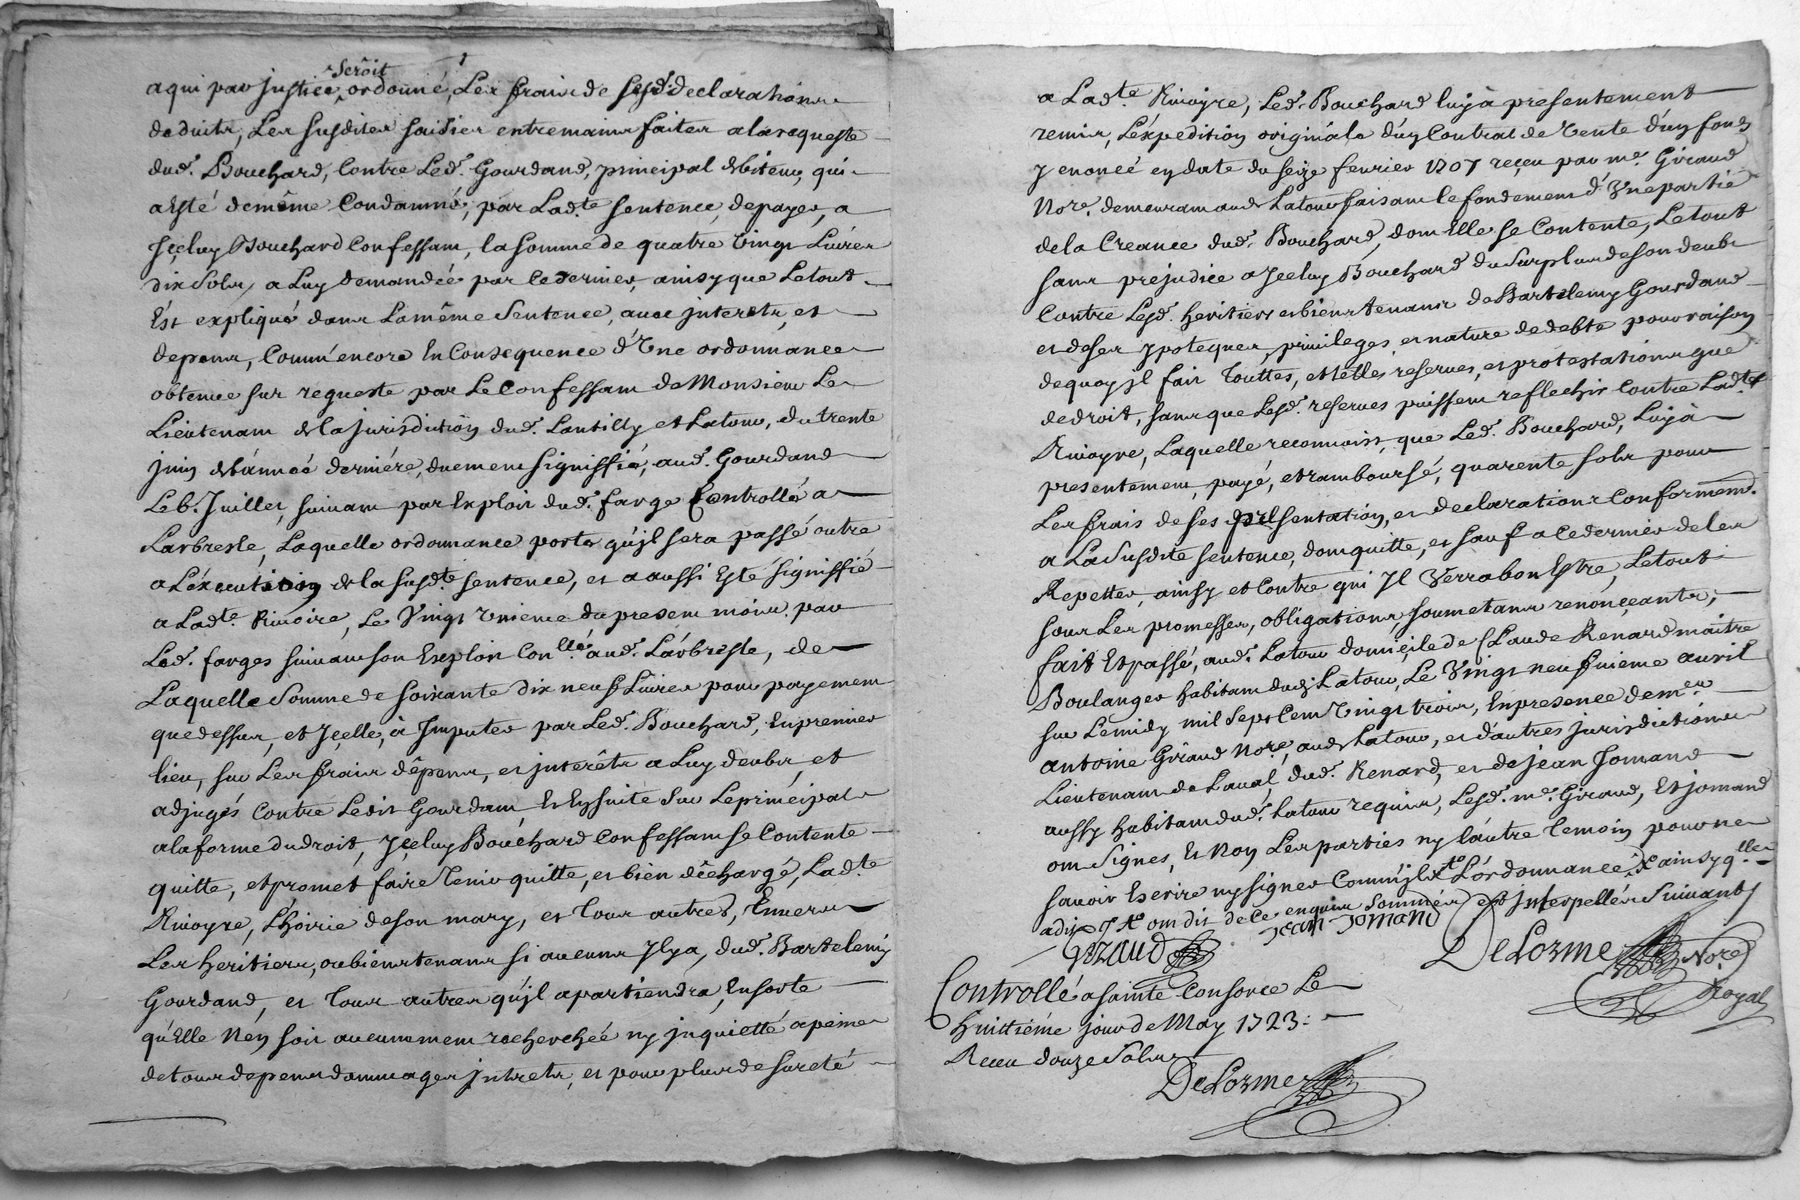 a qui par justice seroit ordonné, Les frais de sesd. declarations
deduits, Les susdites saisies entremains faites ala requeste
dud. Bouchard, Contre Led. Gourdand, principal debiteur, qui
a esté demême Condamné, par Lad.te sentence, depayer, a
jceluy Bouchard Confessant, la somme de quatre Vingt Livres
dix sols, a Luy demandée par ce dernier, ainsy que Letout
Est expliqué dans La même Sentence, avec jnterets, et
depens, Comm'encore En Consequence d'Une ordonnance
obtenue sur requeste par Le Confessant de Monsieur Le
Lieutenant de la Jurisdiction dud. Lantilly et Latour, du trente
juin de l'année derniére, duement signiffiée, aud. Gourdand
Le 6. Juillet, suivant par Exploit dud. farge Controllé a
Larbresle, Laquelle ordonnance porte qu'jl sera passé outre
a L'éxecution de la susd.te sentence, et a aussi Esté signiffié
a Lad.te Rivoire, Le Vingt Unieme du present mois par
Led. farges suivant son Exploit Con.llé aud. L'arbresle, de
Laquelle Somme de soixante dix neuf Livres pour payement
que dessus, et Jcelle, à Jmputer par Led. Bouchard, En premier
lieu, sur Les frais dêpens, et jnterêts a Luy deubs, et
adjugés Contre Ledit Gourdant, Et Ensuite sur Le principal
a la forme du droit, Jceluy Bouchard Confessant se Contente
quitte, et promet faire Tenir quitte, et bien dêchargé, Lad.te
Rivoyre, L'hoirie de son mary, et Tous autres, Envers
Les heritiers, ou biens tenans si aucuns Jl y a, dud. Bartelemy
Gourdand, et Tous autres qu'jl apartiendra, En sorte
qu'Elle N'en soit aucunement recherchée ny jnquiettée a peine
de tous depens dommages jnterets, et pour plus de sureté
a Lad.te Rivoyre, Led. Bouchard luy à presentement
remis, L'expedition originale d'un Contrat de Vente d'un fonds
y enoncé en date du seize fevrier 1707 reçeu par me. Giraud
Nore. demeurant aud. Latour faisant le fondement d'Une partie
de la Creance dud. Bouchard, dont Elle se Contente, Le tout
sans prejudice a Jceluy Bouchard du Surplus de son deub
Contre Lesd. heritiers et biens tenans de Bartelemy Gourdand
et de ses ypoteques, privileges, et nature de debte pour raison
dequoy jl fait Touttes, et telles reserves, et protestations que
de droit, sans que Lesd. reserves puissent reflechir Contre Lad.te
Rivoyre, Laquelle reconnoist, que Led. Bouchard, Luy à
presentement, payé, et rambourssé, quarente sols pour
Les frais de ses presentation, et declarations Conformemt.
a La Susdite sentence, dont quitte, et sauf a ce dernier de les
Repetter, ainsy et Contre qui Jl Verra bon Estre, Le tout
sous Les promesses, obligations soumetans renonçeants,
fait Et passé, aud. Latour domicile de Claude Renard maitre
Boulanger habitant dud. Latour, Le Vingt neufvieme avril
sur Le midy mil Sept Cent Vingt trois, En presence de mer.
antoine Giraud Nore, aud. Latour, et d'autres jurisdictions
Lieutenant de Laval, dud. Renard, et de jean Jomand
aussy habitant dud. Latour requis, Lesd. me. Giraud, Et jomand
ont signes, Et Non Les parties ny l'autre temoin pour ne
savoir Escrire ny signer Comm'jls l'ordonnance, ainsy qlle
adit ont dit de ce enquis sommés et Interpellés suivants
Giraud jean jomand
DeLorme Nore
Royal
Controllé a sainte Consorce Le
huitiéme jour de May 1723:
Receu douze Sols
DeLorme